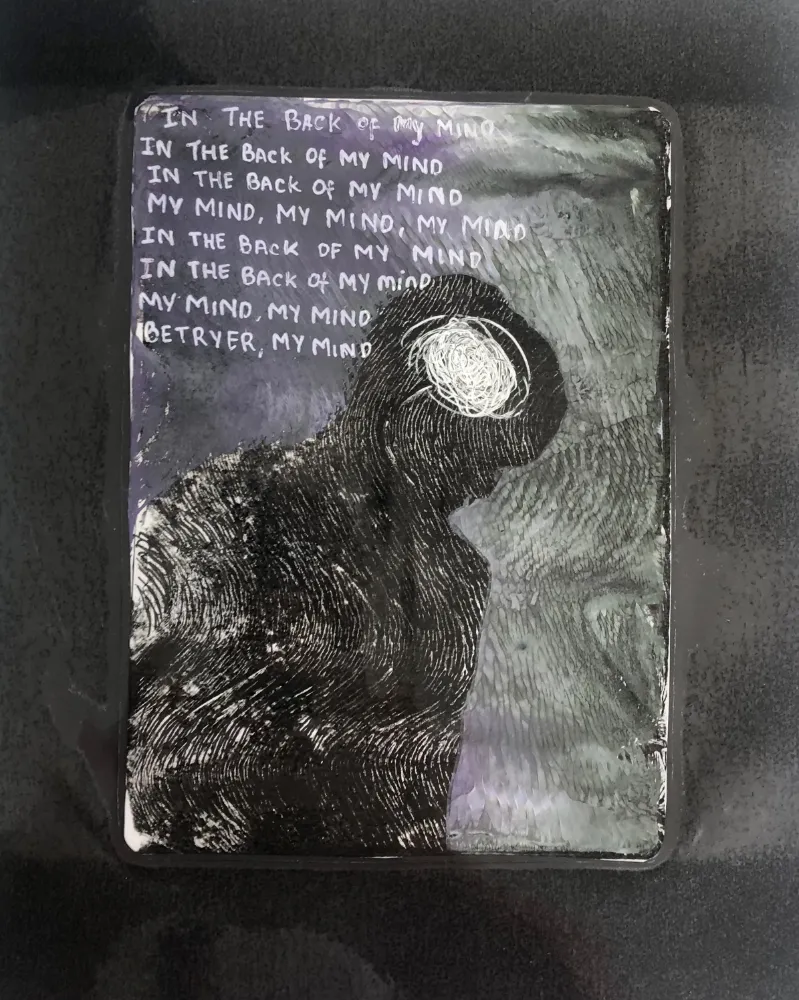 IN THE BACK OF MY MIND
IN THE BACK OF MY MIND
IN THE BACK OF MY MIND
MY MIND, MY MIND, MY MIND
IN THE BACK OF MY MIND
IN THE BACK OF MY minD
MY MIND, MY MIND
BETRYER, MY MIND